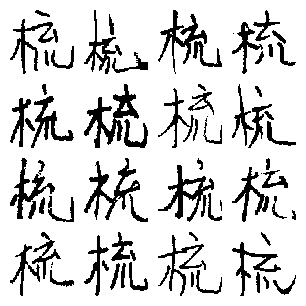 梳梳梳梳
梳梳梳梳
梳梳梳梳
梳梳梳梳